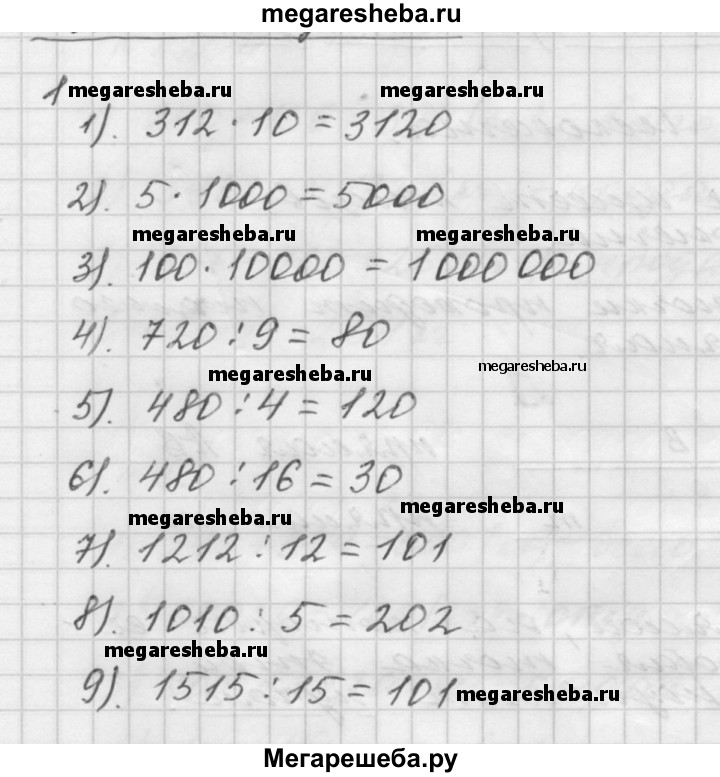 megaresheba.ru
1
megaresheba.ru megaresheba.ru
1). 312 · 10 = 3120
2). 5 · 1000 = 5000
megaresheba.ru megaresheba.ru
3). 100 · 10000 = 1000 000
4). 720 : 9 = 80
megaresheba.ru megaresheba.ru
5). 480 : 4 = 120
6). 480 : 16 = 30
megaresheba.ru megaresheba.ru
7). 1212 : 12 = 101
8). 1010 : 5 = 202
megaresheba.ru
9). 1515 : 15 = 101 megaresheba.ru
Мегарешеба.ру